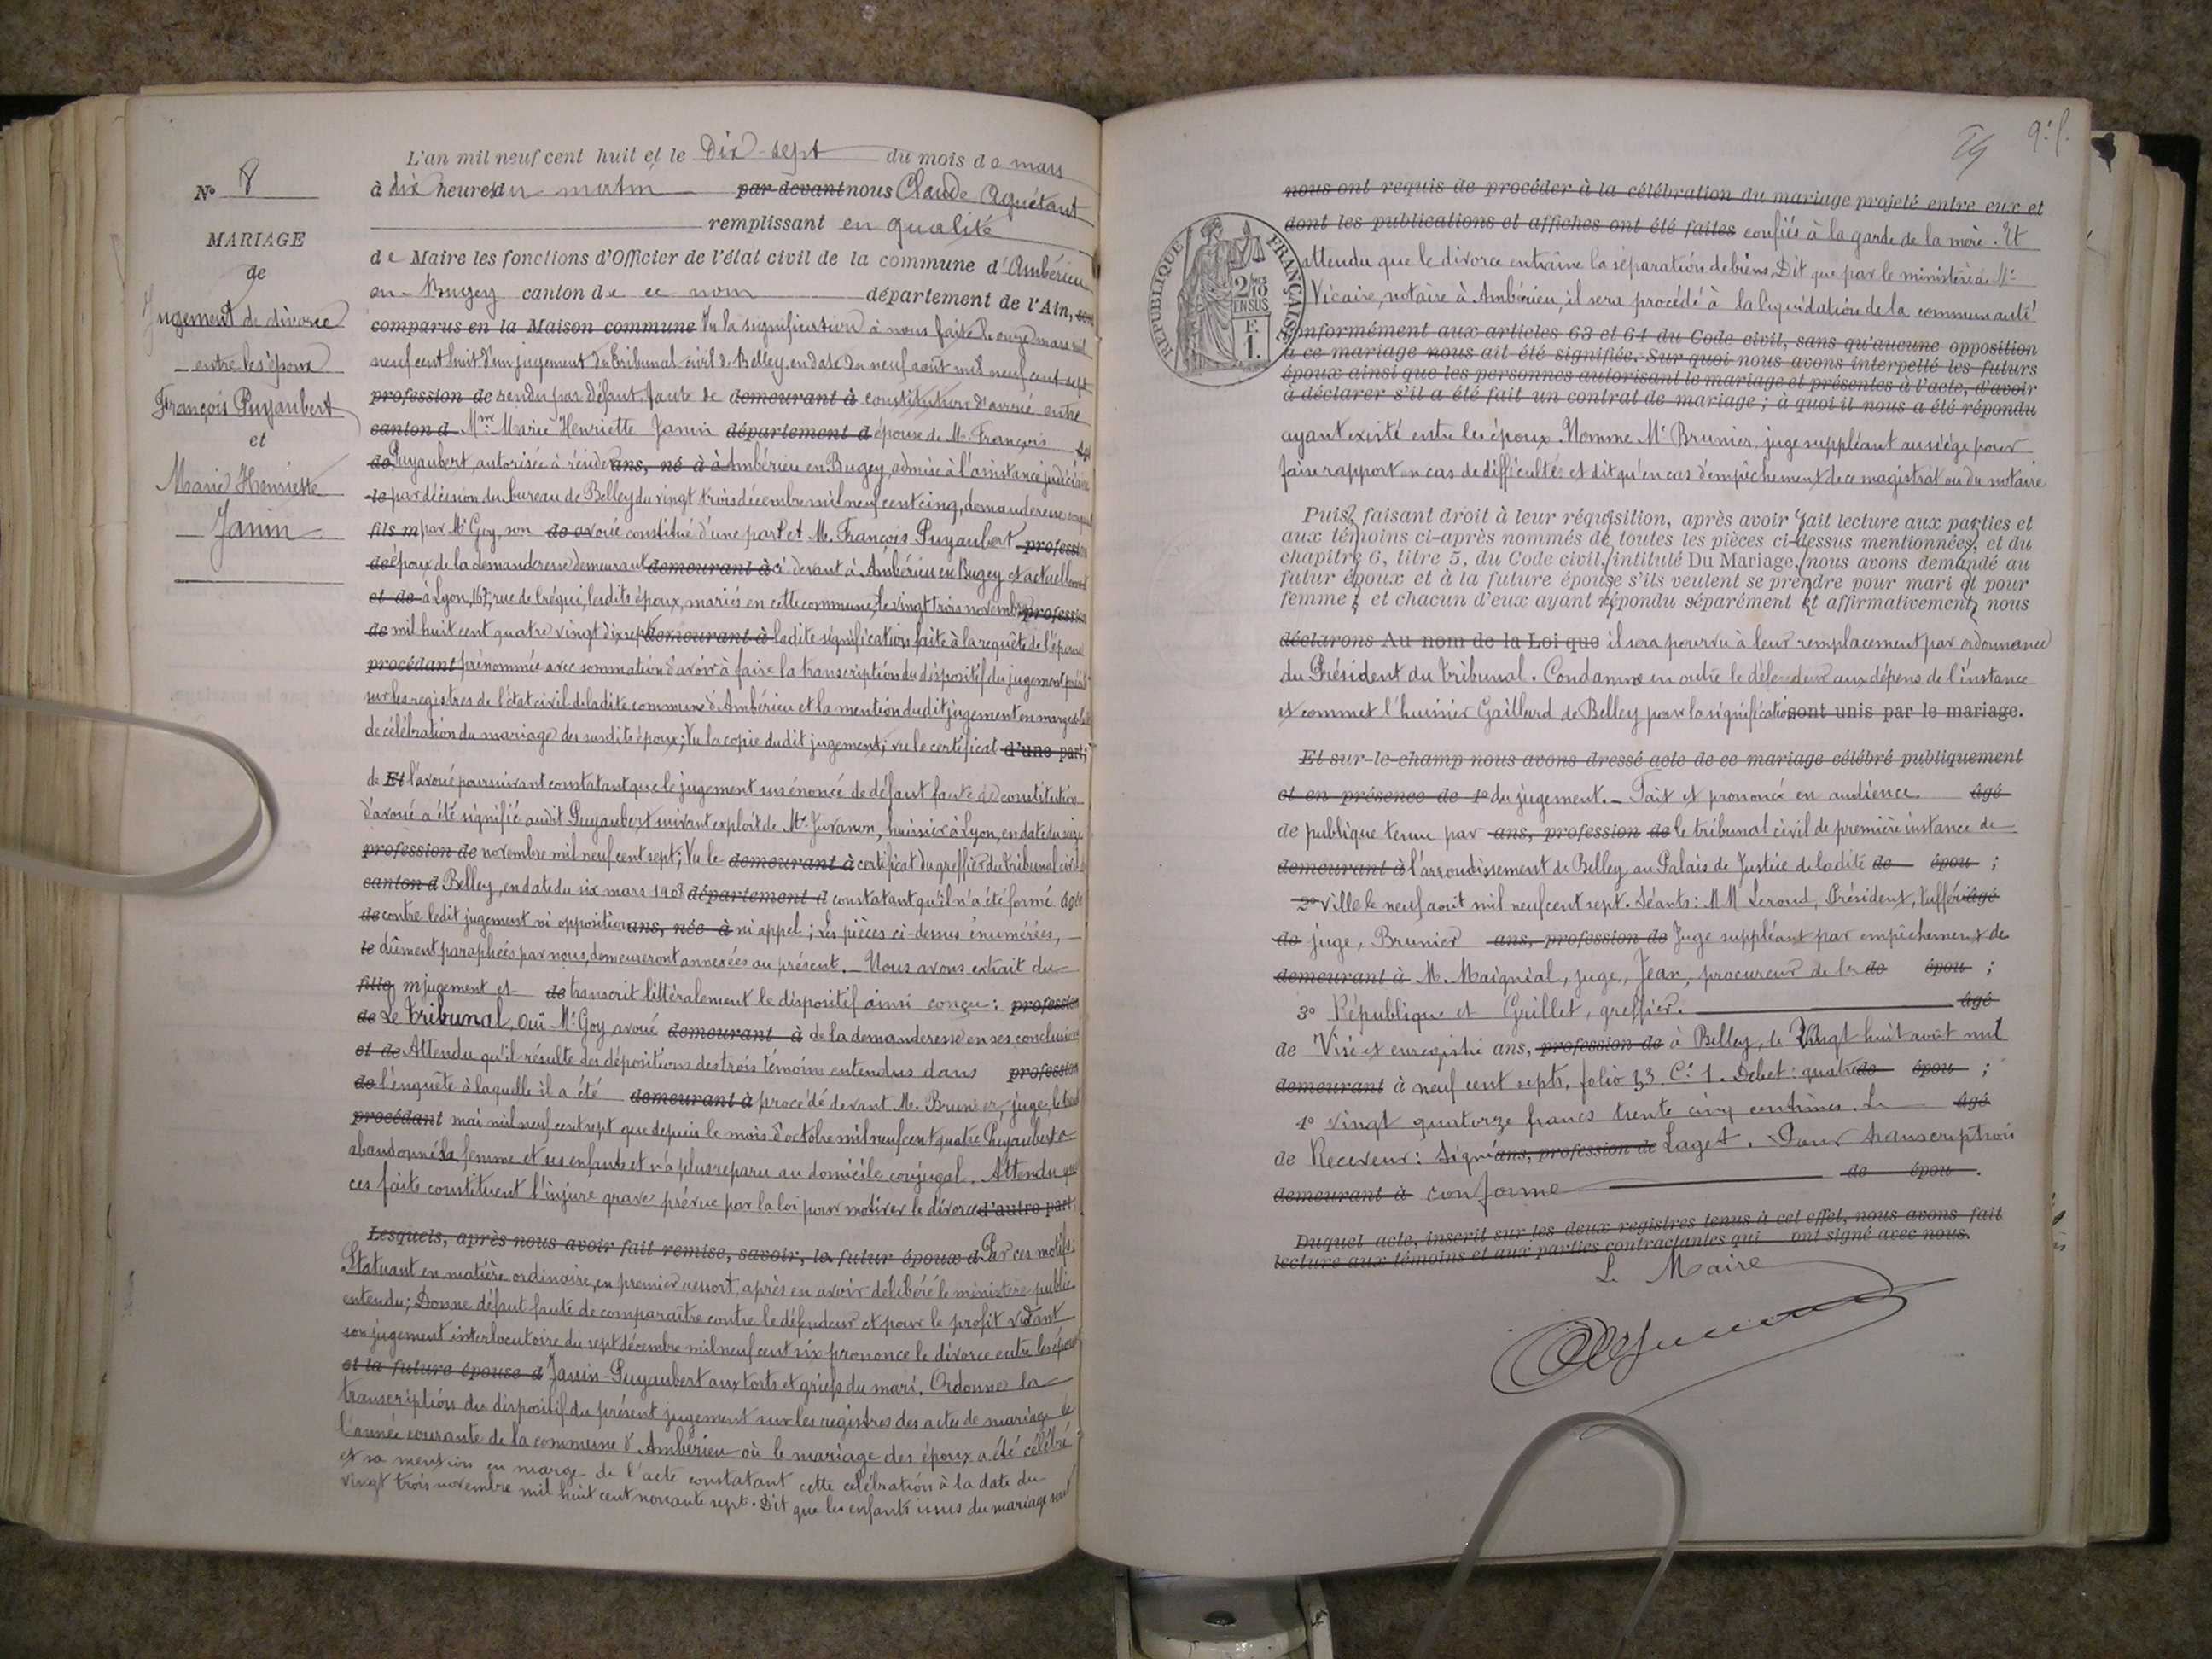 N° 8
MARIAGE
de
Jugement de divorce
entre les époux
François Puyaubert
et
Marie Henriette
Janin
L'an mil neuf cent huit et le Dix-sept du mois de mars
à dix heures du matin par devant nous Claude Aguétant
remplissant en qualité
de Maire les fonctions d'Officier de l'état civil de la commune d'Ambérieu
en Bugey canton de ce nom département de l'Ain, sont
comparus en la Maison commune Vu la signification à nous faite le onze mars mil
neuf cent huit d'un jugement du tribunal civil de Belley, en date du neuf août mil neuf cent sept
profession de rendu par défaut faute de demeurant à constitution d'avoué entre
canton d Mme Marie Henriette Janin département d épouse de M. François
de Puyaubert, autorisée à résider ans, né à à Ambérieu en Bugey, admise à l'assistance judiciaire
le par décision du bureau de Belley du vingt trois décembre mil neuf cent cinq, demanderesse
fils m par Me Goy, son de avoué constitué d'une part et M. François Puyaubert profession
de époux de la demanderesse demeurant demeurant à ci devant à Ambérieu en Bugey et actuellement
et de à Lyon, 167, rue de Créqui, lesdits époux, mariés en cette commune, le vingt trois novembre profession
de mil huit cent quatre vingt dix sept demeurant à ladite signification faite à la requête de l'épouse
procédant prénommée avec sommation d'avoir à faire la transcription du dispositif du jugement
sur les registres de l'état civil de ladite commune d'Ambérieu et la mention dudit jugement en marge de
de célébration du mariage des susdits époux; Vu la copie dudit jugement; vu le certificat d'une part;
de Et l'avoué poursuivant constatant que le jugement susénoncé de défaut faute de constitution
d'avoué a été signifié audit Puyaubert suivant exploit de Me Juvanon, huissier à Lyon, en date du
profession de novembre mil neuf cent sept; Vu le demeurant à certificat du greffier du tribunal civil
canton d Belley, en date du six mars 1908 département d constatant qu'il n'a été formé âgée
de contre ledit jugement ni opposition ans, née à ni appel; Les pièces ci-dessus énumérées,
le dûment paraphées par nous, demeureront annexées au présent. Nous avons extrait du
fille m jugement et de transcrit littéralement le dispositif ainsi conçu: profession
de Le Tribunal, Ouï Me Goy avoué demeurant à de la demanderesse en ses conclusions
et de Attendu qu'il résulte des dépositions des trois témoins entendus dans profession
de l'enquête à laquelle il a été demeurant à procédé devant M. Brunier, juge,
procédant mai mil neuf cent sept que depuis le mois d'octobre mil neuf cent quatre Puyaubert a
abandonné sa femme et ses enfants et n'a plus reparu au domicile conjugal. Attendu que
ces faits constituent l'injure grave prévue par la loi pour motiver le divorce d'autre part.
Lesquels, après nous avoir fait remise, savoir, le futur époux d Par ces motifs:
Statuant en matière ordinaire, en premier ressort, après en avoir délibéré le ministère public
entendu; Donne défaut faute de comparaître contre le défendeur et pour le profit vidant
son jugement interlocutoire du sept décembre mil neuf cent six prononce le divorce entre les époux
et la future épouse d Janin-Puyaubert aux torts et griefs du mari. Ordonne la
transcription du dispositif du présent jugement sur les registres des actes de mariage de
l'année courante de la commune d'Ambérieu où le mariage des époux a été célébré
et sa mention en marge de l'acte constatant cette célébration à la date du
vingt trois novembre mil huit cent nonante sept. Dit que les enfants issus du mariage sont
9e f.
RÉPUBLIQUE FRANÇAISE
2/10 EN SUS
F. 1.
nous ont requis de procéder à la célébration du mariage projeté entre eux et
dont les publications et affiches ont été faites confiés à la garde de la mère. Et
attendu que le divorce entraîne la séparation de biens, Dit que par le ministère de Me
Vicaire, notaire à Ambérieu, il sera procédé à la liquidation de la communauté
conformément aux articles 63 et 64 du Code civil, sans qu'aucune opposition
à ce mariage nous ait été signifiée. Sur quoi nous avons interpellé les futurs
époux ainsi que les personnes autorisant le mariage et présentes à l'acte, d'avoir
à déclarer s'il a été fait un contrat de mariage; à quoi il nous a été répondu
ayant existé entre les époux. Nomme Me Brunier, juge suppléant au siège pour
faire rapport en cas de difficultés et dit qu'en cas d'empêchement de ce magistrat ou du notaire
Puis, faisant droit à leur réquisition, après avoir fait lecture aux parties et
aux témoins ci-après nommés de toutes les pièces ci-dessus mentionnées, et du
chapitre 6, titre 5, du Code civil, intitulé Du Mariage, nous avons demandé au
futur époux et à la future épouse s'ils veulent se prendre pour mari et pour
femme; et chacun d'eux ayant répondu séparément et affirmativement, nous
déclarons Au nom de la Loi que il sera pourvu à leur remplacement par ordonnance
du Président du tribunal. Condamne en outre le défendeur aux dépens de l'instance
et commet l'huissier Gaillard de Belley pour la signification sont unis par le mariage.
Et sur-le-champ nous avons dressé acte de ce mariage célébré publiquement
et en présence de 1° du jugement. Fait et prononcé en audience âgé
de publique tenue par ans, profession de le tribunal civil de première instance de
demeurant à l'arrondissement de Belley au Palais de Justice de ladite de épou ;
2° ville le neuf août mil neuf cent sept. Séants: MM Leroud, Président, âgé
de juge, Brunier ans, profession de Juge suppléant par empêchement de
demeurant à M. Maignial, juge, Jean, procureur de la de épou ;
3° République et Grillet, greffier. âgé
de Visé et enregistré ans, profession de à Belley, le Vingt huit août mil
demeurant à neuf cent sept, folio 23 C. 1. Debet: quatre de épou ;
4° vingt quatorze francs trente cinq centimes. Le âgé
de Receveur: Signé ans, profession de Laget. Pour transcription
demeurant à conforme de épou .
Duquel acte, inscrit sur les deux registres tenus à cet effet, nous avons fait
lecture aux témoins et aux parties contractantes qui ont signé avec nous.
Le Maire